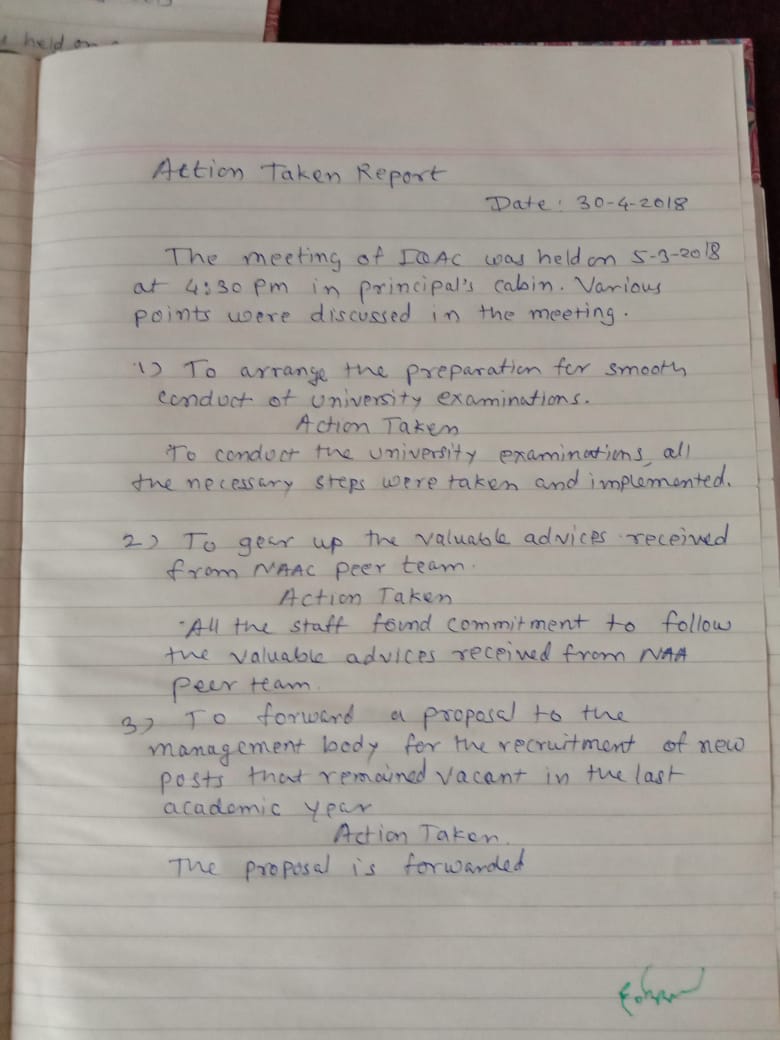 held on
Action Taken Report
Date : 30-4-2018
The meeting of IQAC was held on 5-3-2018
at 4:30 pm in principal's cabin. Various
points were discussed in the meeting.
1) To arrange the preparation for smooth
conduct of university examinations.
Action Taken
To conduct the university examinations, all
the necessary steps were taken and implemented.
2) To gear up the valuable advices received
from NAAC peer team.
Action Taken
All the staff found commitment to follow
the valuable advices received from NAA
peer team.
3) To forward a proposal to the
management body for the recruitment of new
posts that remained vacant in the last
academic year
Action Taken.
The proposal is forwarded